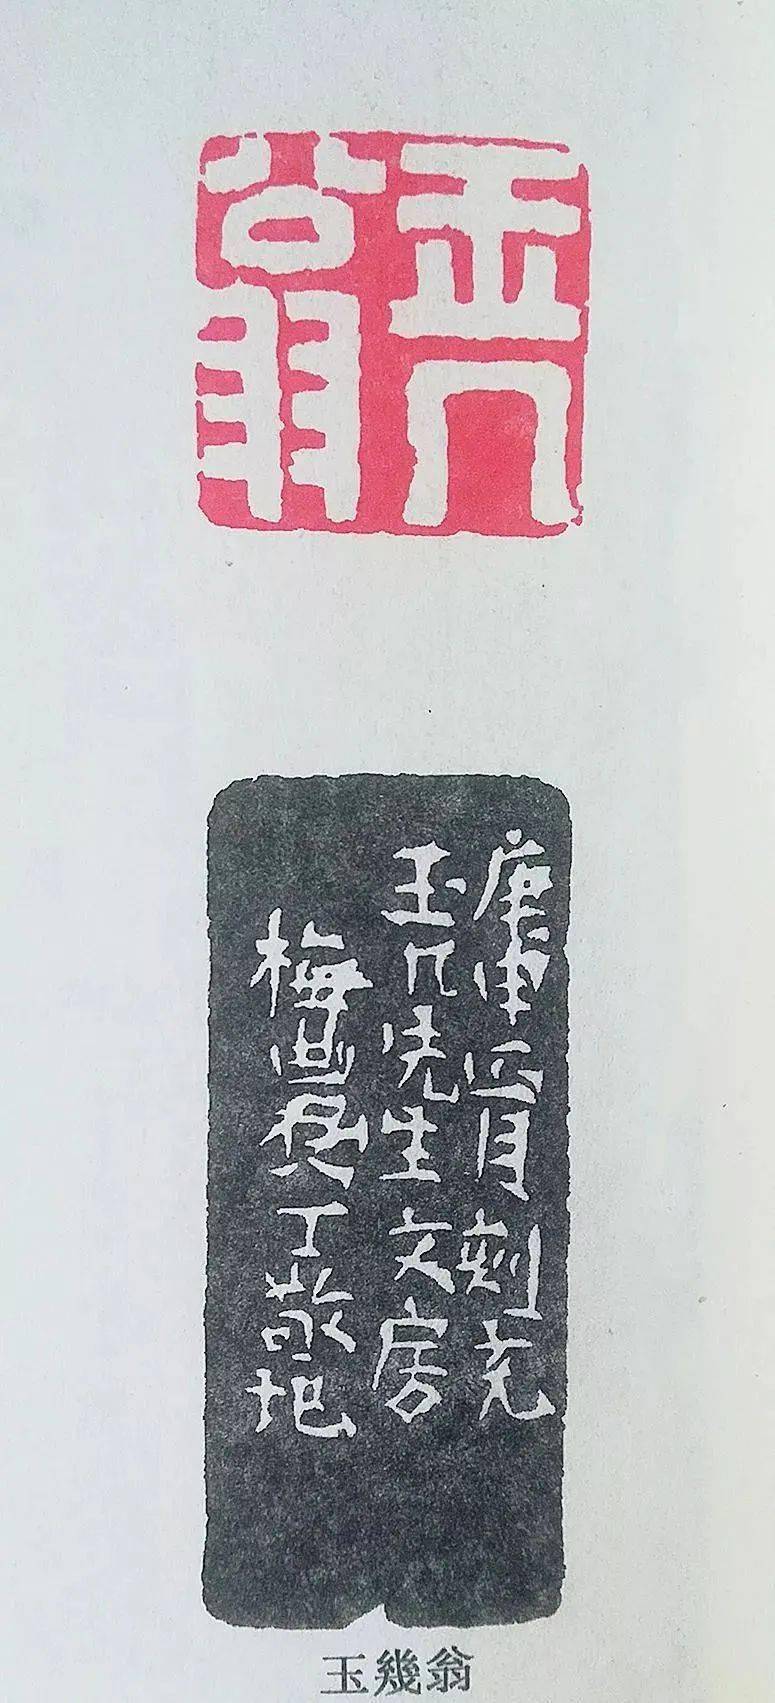 玉几
翁
庚申正月刻充
玉几先生文房
梅農丁敬記
玉幾翁